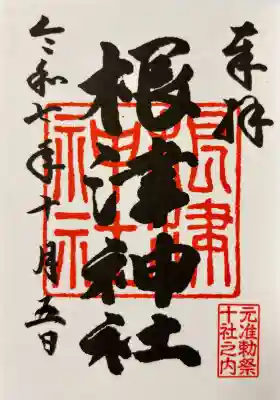 奉拝
根津神社
根津神社
令和七年十月五日
元准勅祭
十社之内